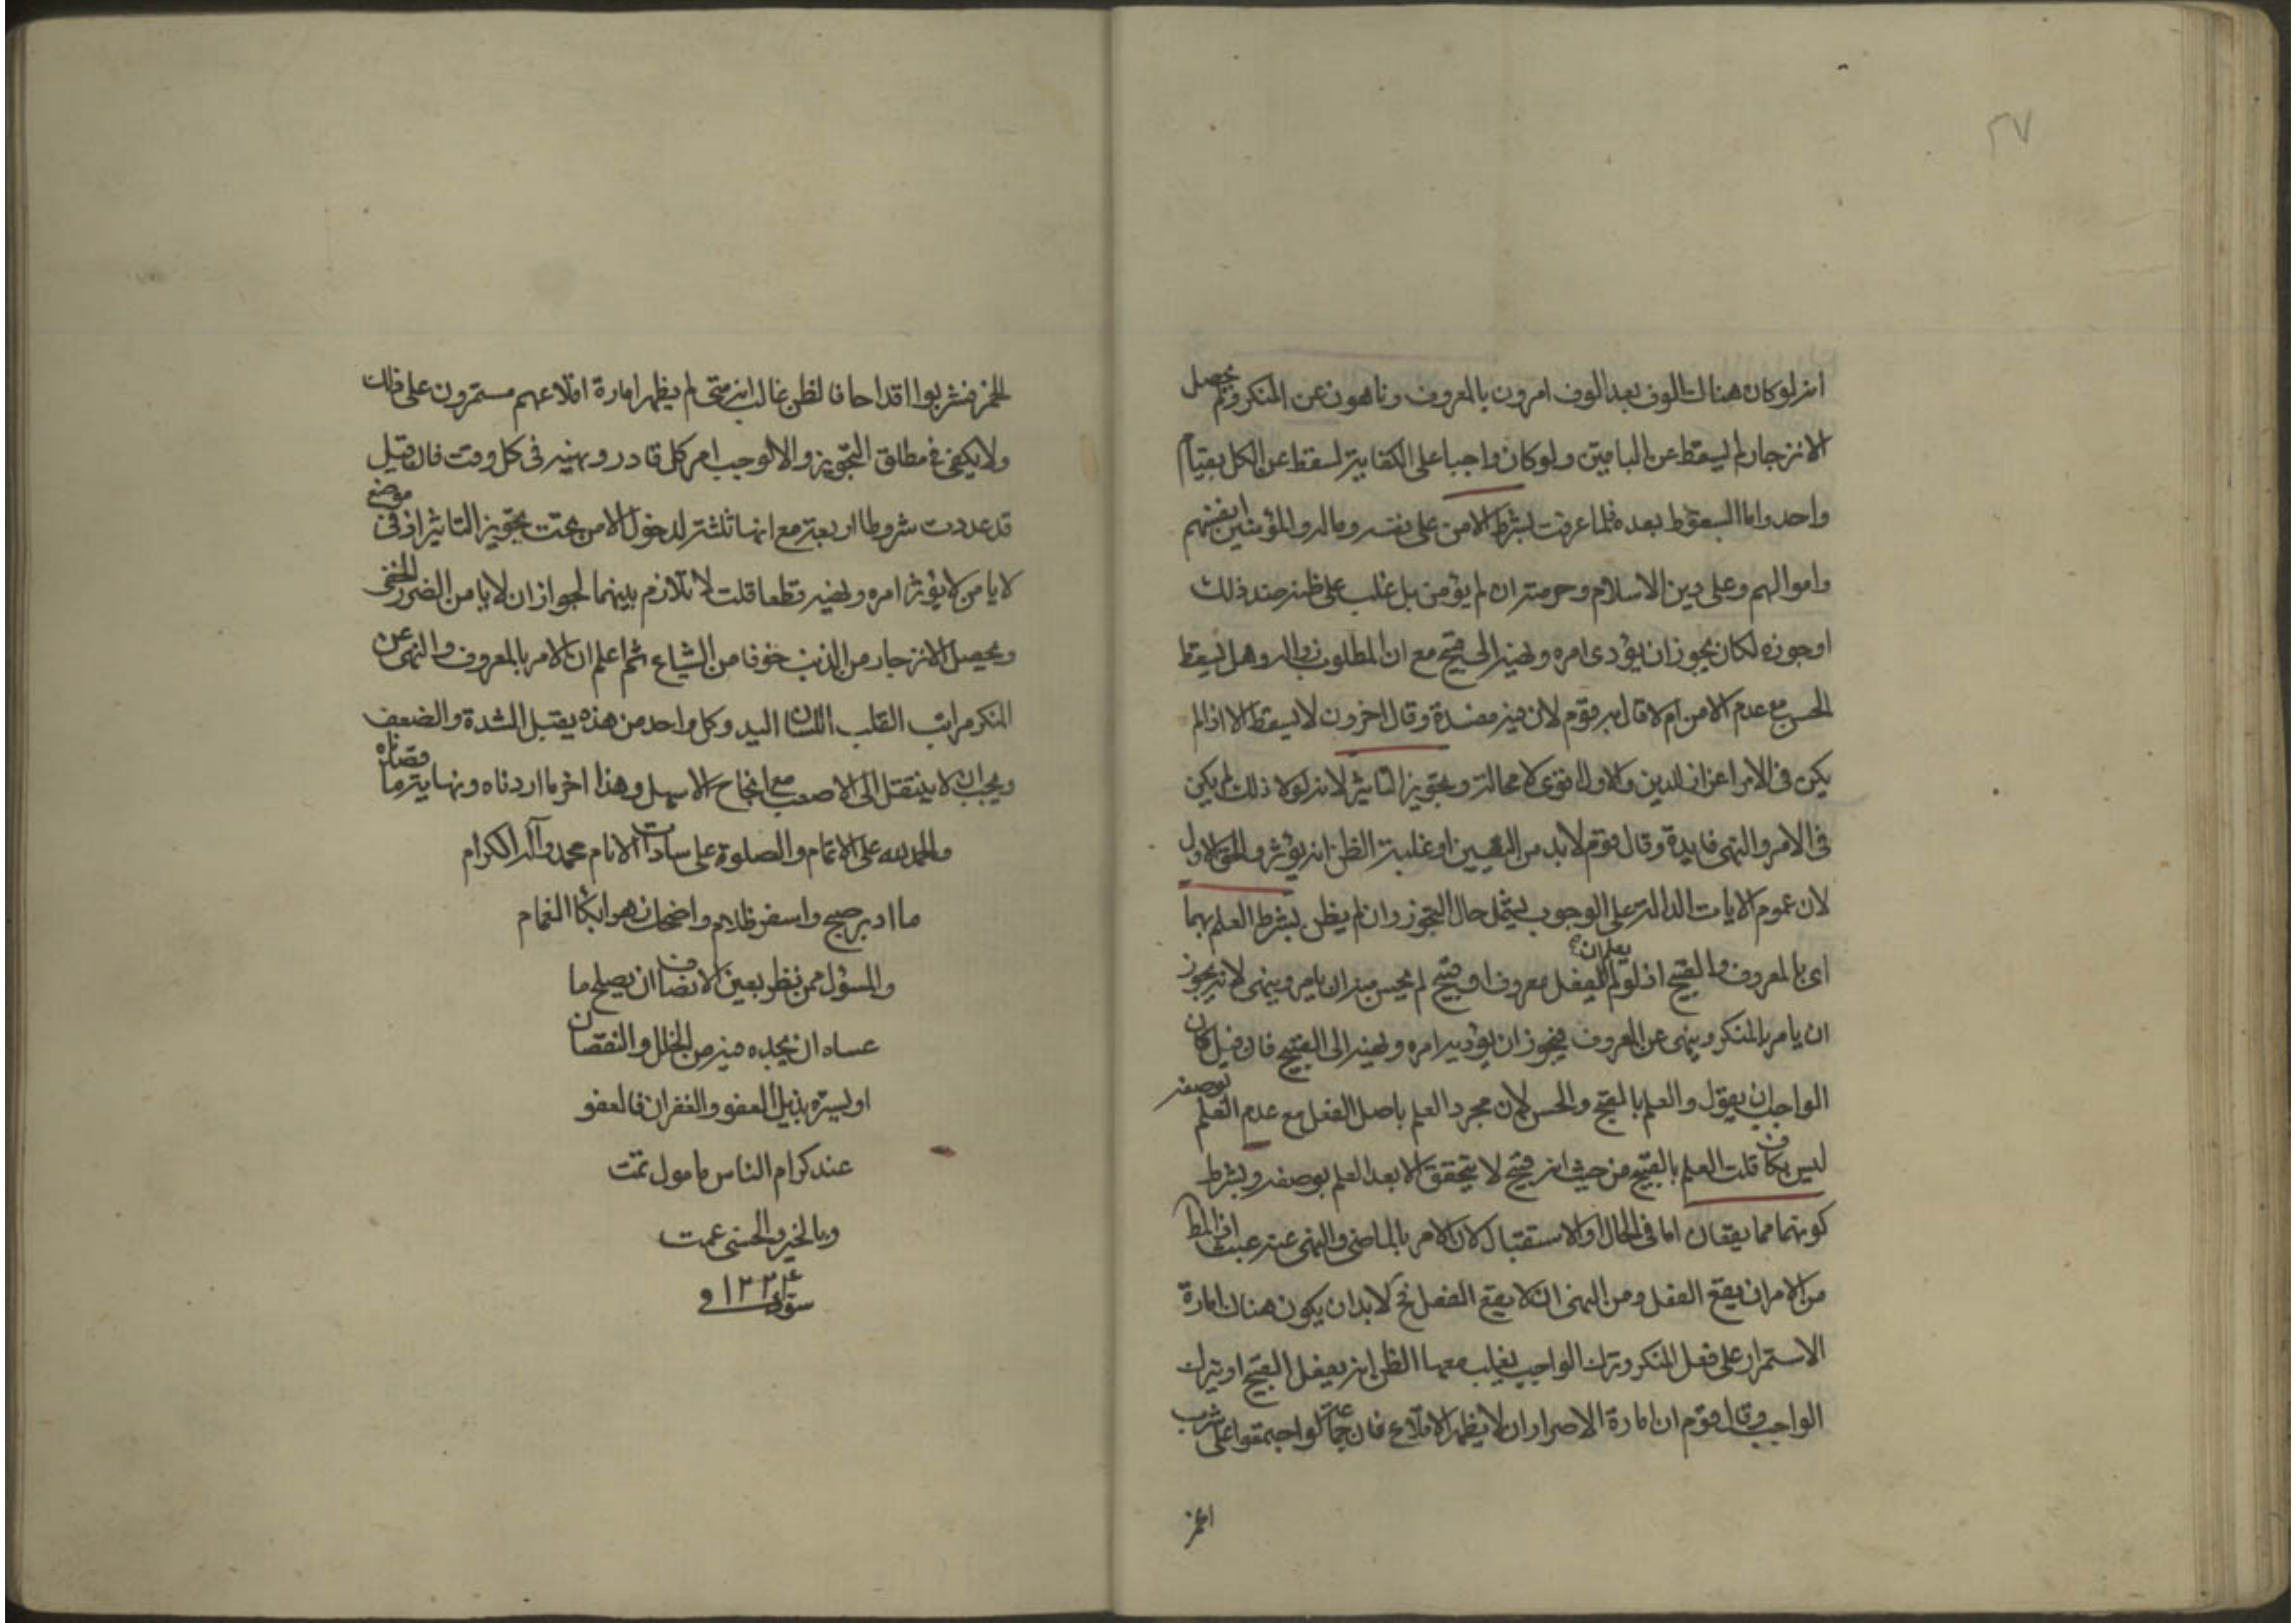 ٢٧
انه لو كان هناك الوف بعد الوف امرون بالمعروف وناهون عن المنكر ولم يحصل
الانزجار لم يسقط عن الباقين ولو كان واجبا على الكفاية لسقط عن الكل بقيام
واحد واما السقوط بعده فلما عرفت بشرط الامن على نفسه وماله والمؤمنين انفسهم
واموالهم وعلى دين الاسلام وحرمته ان لم يؤمن بل غلب على ظنه ضد ذلك
او جوزه لكان يجوز ان يؤدى امره ونهيه الى قبيح مع ان المطلوب زواله وهل يسقط
الحسن مع عدم الامن ام لا قال به قوم لان فيه مفسدة وقال اخرون لا يسقط الا اذا لم
يكن فى الامر اعزاز الدين والاول اقوى لا محالة وبتجويز التاثير لانه لولا ذلك لم يكن
فى الامر والنهى فايدة وقال قوم لابد من اليقين او غلبة الظن انه يؤثر والحق الاول
لان عموم الايات الدالة على الوجوب يشمل حال التجوز وان لم يظن بشرط العلم بهما
اى بالمعروف والقبيح اذ لو لم يعلم ان الفعل معروف او قبيح لم يحسن منه ان يامر وينهى لانه يجوز
ان يامر بالمنكر وينهى عن المعروف فيجوز ان يؤديه امره ونهيه الى القبيح فان قيل كان
الواجب ان يقول والعلم بالقبح والحسن لان مجرد العلم باصل الفعل مع عدم العلم بوصفه
ليس بكاف قلت العلم بالقبيح من حيث انه قبيح لا يتحقق الا بعد العلم بوصفه وبشرط
كونهما مما يقعان اما فى الحال او الاستقبال لان الامر بالماضى والنهى عنه عبث اذ المط
من الامر ان يقع الفعل ومن النهى ان لا يقع الفعل فح لابد ان يكون هناك امارة
الاستمرار على فعل المنكر وترك الواجب يغلب معها الظن انه يفعل القبيح او يترك
الواجب وقال قوم ان امارة الاصرار ان لا يظهر الاقلاع فان جماعة لو اجتمعوا على شرب
الخمر
الخمر فشربوا اقداحا فالظن غالب انه متى لم يظهر امارة اقلاعهم مستمرون على ذلك
ولا يكفى فيه مطلق التجويز والا لوجب امر كل قادر ونهيه فى كل وقت فان قيل
قد عددت شروطا اربعة مع انها ثلثة لدخول الامن تحت تجويز التاثير اذ فى موضع
لا يامن لا يؤثر امره ونهيه قطعا قلت لا تلازم بينهما لجواز ان لا يامن الضرر الخفى
ويحصل الانزجار من الذنب خوفا من الشياع ثم اعلم ان الامر بالمعروف والنهى عن
المنكر مراتب القلب اللسان اليد وكل واحد من هذه يقبل الشدة والضعف
ويجب ان لا ينتقل الى الاصعب مع انجاح الاسهل وهذا اخر ما اردناه ونهاية ما قصدناه
والحمد لله على الاتمام والصلوة على سادات الانام محمد وآله الكرام
ما ادبر صبح واسفر ظلام واضحك زهر ابكا الغمام
والمسؤل ممن نظر بعين الانصاف ان يصلح ما
عساه ان يجده فيه من الخلل والنقصان
او يستره بذيل العفو والغفران فالعفو
عند كرام الناس مامول تمت
وبالخير والحسنى عمت
١٢٢٤